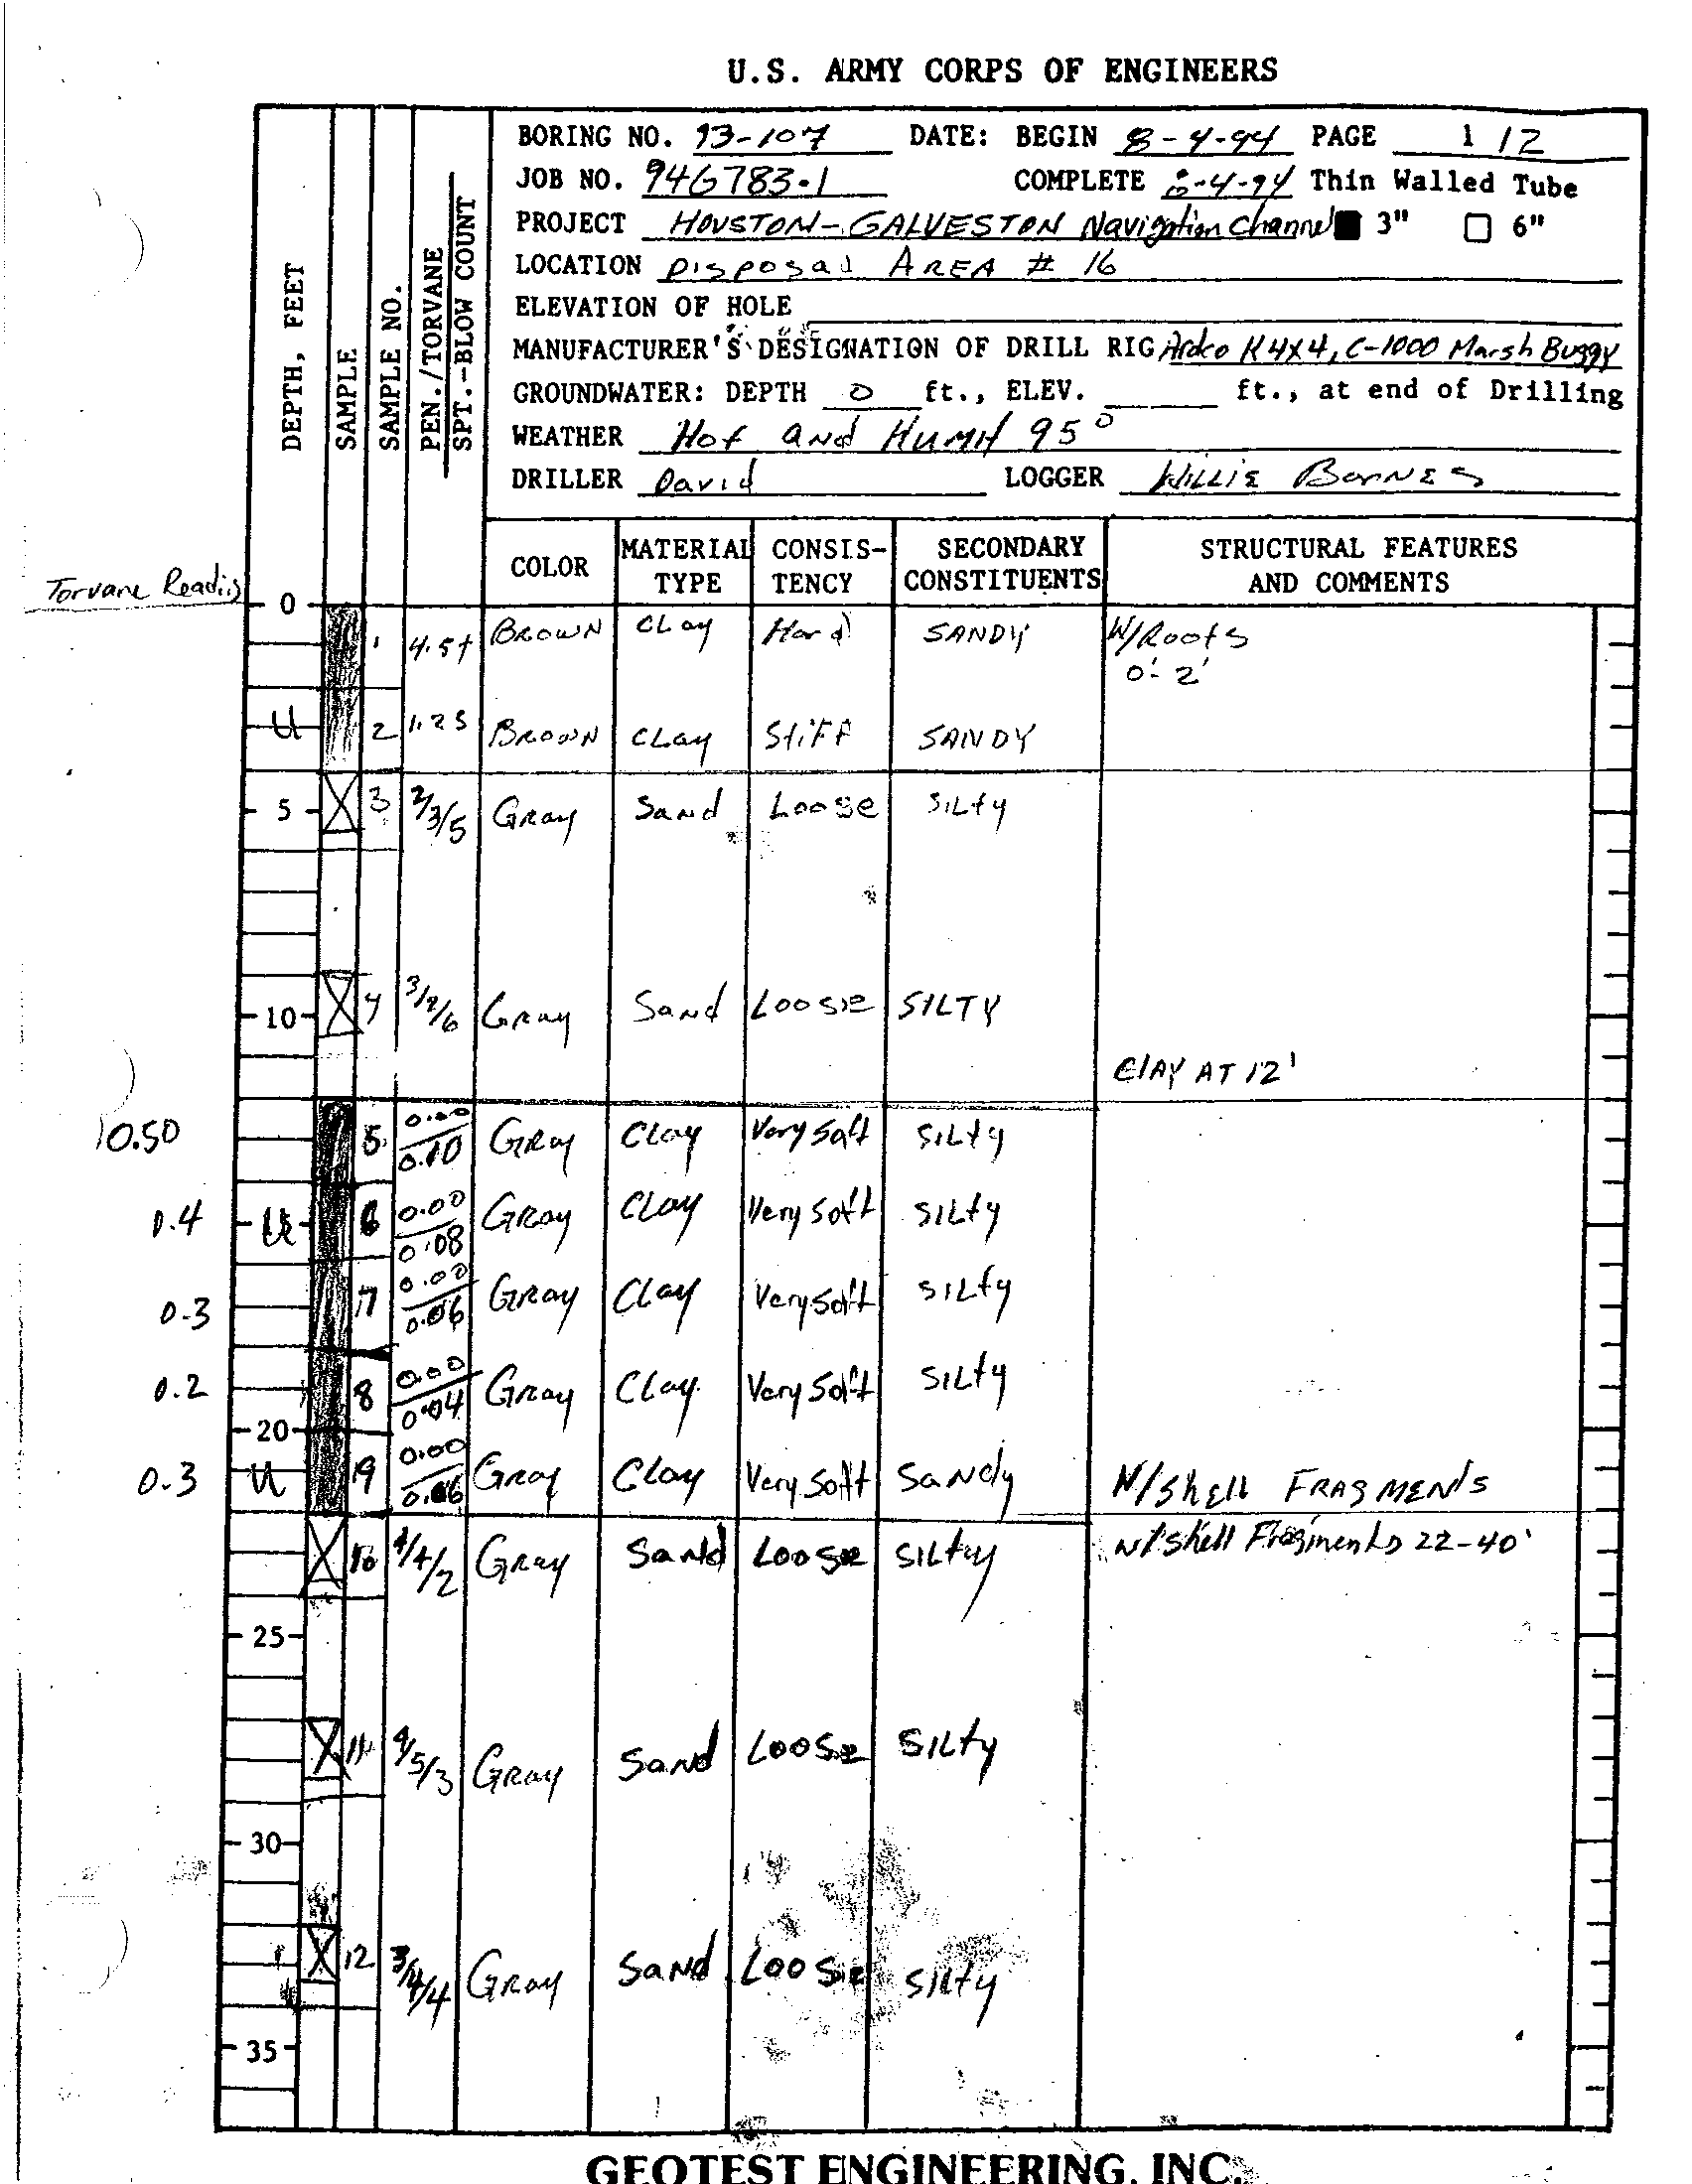 U.S. ARMY CORPS OF ENGINEERS
BORING NO. 93-107 DATE: BEGIN 8-4-94 PAGE 1 / 2
JOB NO. 94G783.1 COMPLETE 8-4-94 Thin Walled Tube
PROJECT HOUSTON-GALVESTON Navigation Channel ■ 3" □ 6"
LOCATION Disposal AREA # 16
ELEVATION OF HOLE
MANUFACTURER'S DESIGNATION OF DRILL RIG Ardco K 4X4, C-1000 Marsh Buggy
GROUNDWATER: DEPTH 0 ft., ELEV. ft., at end of Drilling
WEATHER Hot and HUMid 95°
DRILLER David LOGGER WILLIE BarNES
DEPTH, FEET
SAMPLE
SAMPLE NO.
PEN./TORVANE
SPT.-BLOW COUNT
COLOR MATERIAL TYPE CONSIS-TENCY SECONDARY CONSTITUENTS STRUCTURAL FEATURES AND COMMENTS
Torvane Readi
0
1 4.5+ BROWN CLay Hard SANDY W/Roots
0'- 2'
U 2 1.25 BROWN CLay StiFF SANDY
5 3 2/3/5 Gray Sand Loose SILty
10 4 Gray Sand Loose SILTY
ClAY AT 12'
0.50 5 0.00/0.10 Gray Clay Very Soft SiLty
0.4 6 0.00/0.08 Gray Clay Very Soft SiLty
0.3 7 0.00/0.06 Gray Clay Very Soft SiLty
0.2 8 0.00/0.04 Gray Clay Very Soft SiLty
20
0.3 U 9 0.00/0.06 Gray Clay Very Soft Sandy W/Shell FRAGMENts
10 4/4/2 Gray Sand Loose SILty w/shell Fragments 22-40'
25
11 4/5/3 Gray Sand Loose SILty
30
12 3/4/4 Gray Sand Loose SILty
35
GEOTEST ENGINEERING, INC.